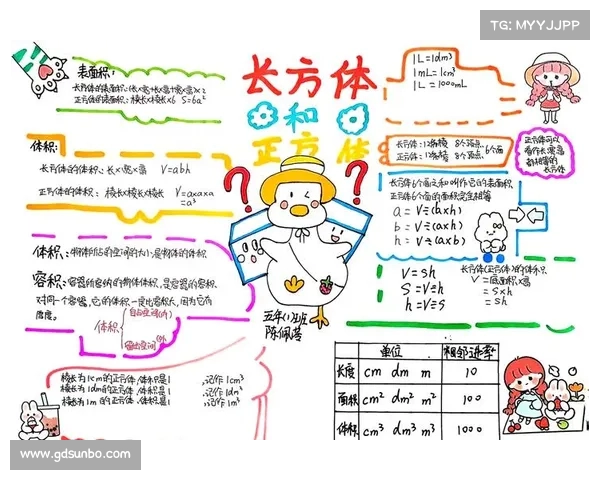 TG: MYYJJPP
长方体
和
正方体
表面积:
长方体的表面积:(长×宽+长×高+宽×高)×2
正方体的表面积:棱长×棱长×6 S=6a²
体积:
长方体的体积:长×宽×高 V=abh
正方体的体积:棱长×棱长×棱长 V=a×a×a
=a³
体积:物体所占的空间的大小,是物体的体积.
容积:容器所容纳的物体体积,是容器的容积.
对同一个容器,它的体积一定比容积大,因为它有
厚度。
体积
棱长为1cm的正方体,体积是1 记作1cm³
棱长为1dm的正方体,体积是1 记作1dm³
棱长为1m的正方体,体积是1 记作1m³
? ?
五年(1)班
陈佩
1L=1dm³
1mL=1cm³
1L=1000mL
长方体:12条棱 8个顶点
正方体:12条棱 8个顶点
6个面
正方体可以
看作长宽高
都相等的
长方体
长方体6个面之和叫作它的表面积.
正方体6个面的面积完全相等
a=V÷(b×h)
b=V÷(a×h)
h=V÷(a×b)
V=sh
S=V÷h
h=V÷S
长方体(正方体)的体积
V=底面积×高
=S×h
=sh
单位 相邻进率
长度 cm dm m 10
面积 cm² dm² m² 100
体积 cm³ dm³ m³ 1000
www.gdsunbo.com